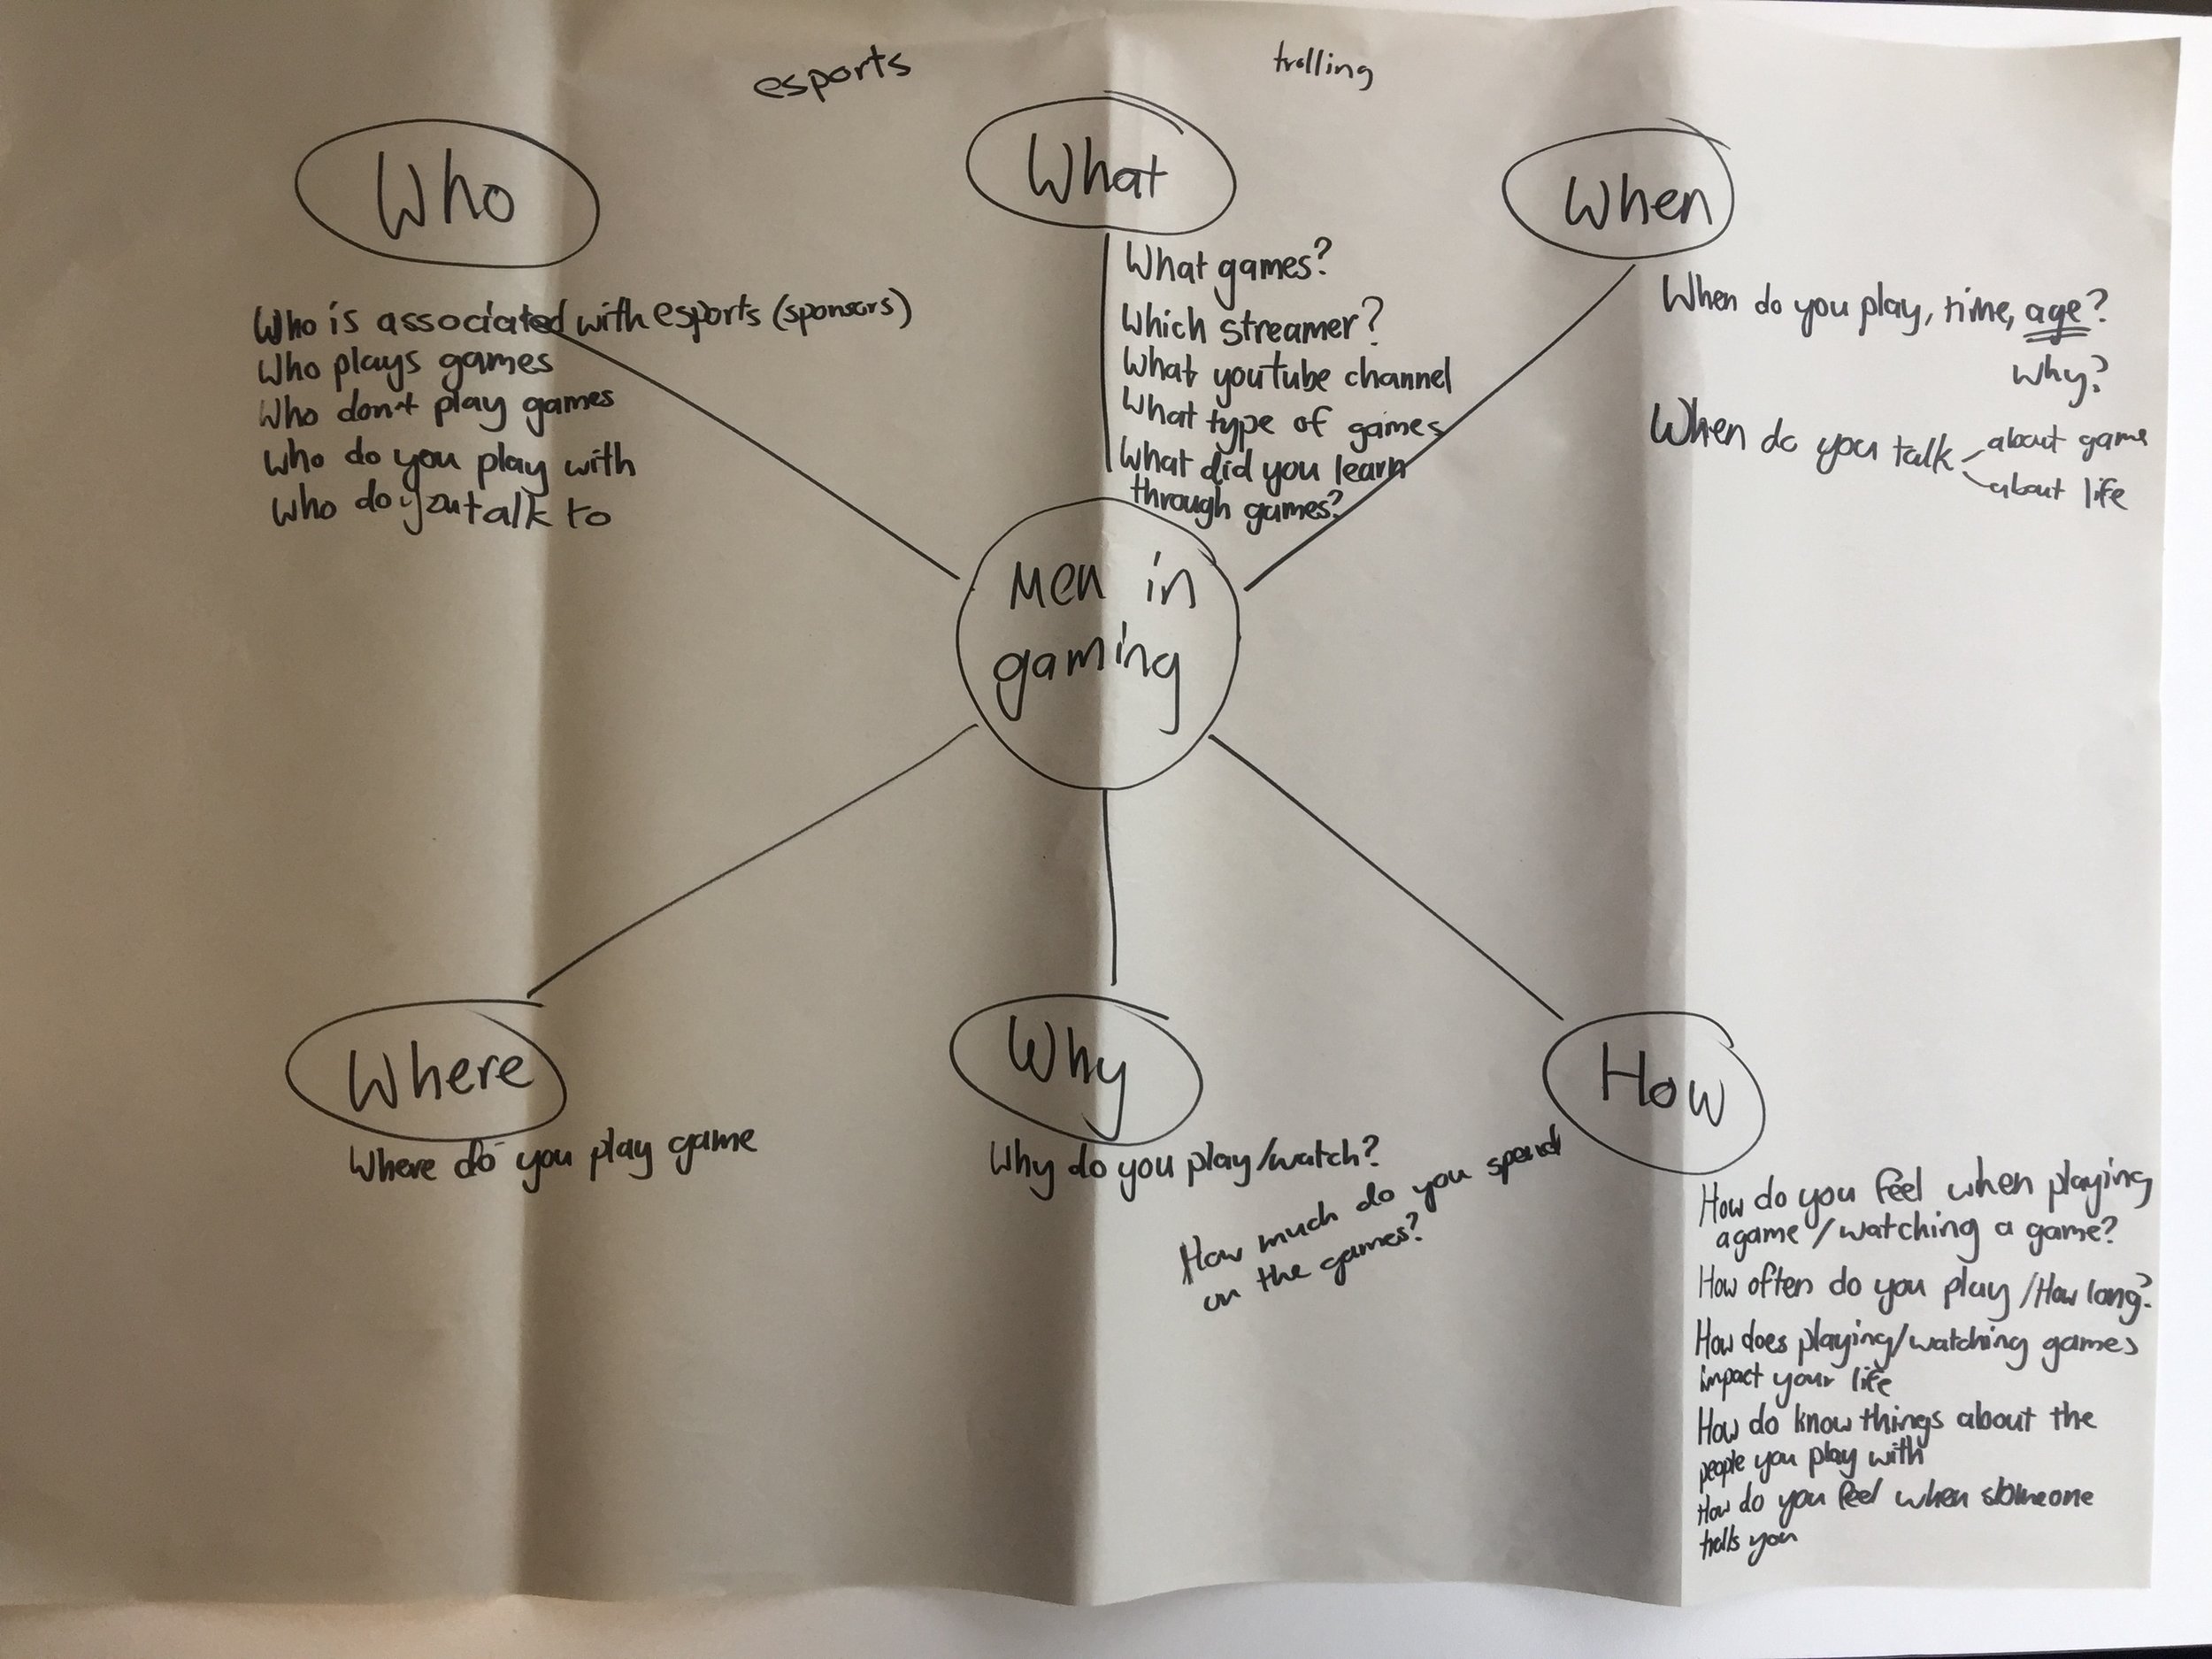 esports
trolling
Who
Who is associated with esports (sponsors)
Who plays games
Who don't play games
Who do you play with
Who do you talk to
What
What games?
Which streamer?
What youtube channel
What type of games
What did you learn
through games?
When
When do you play, time, age?
Why?
When do you talk
about game
about life
Men in
gaming
Where
Where do you play game
Why
Why do you play/watch?
How much do you spend
on the games?
How
How do you feel when playing
a game/watching a game?
How often do you play/How long?
How does playing/watching games
impact your life
How do know things about the
people you play with
How do you feel when someone
trolls you